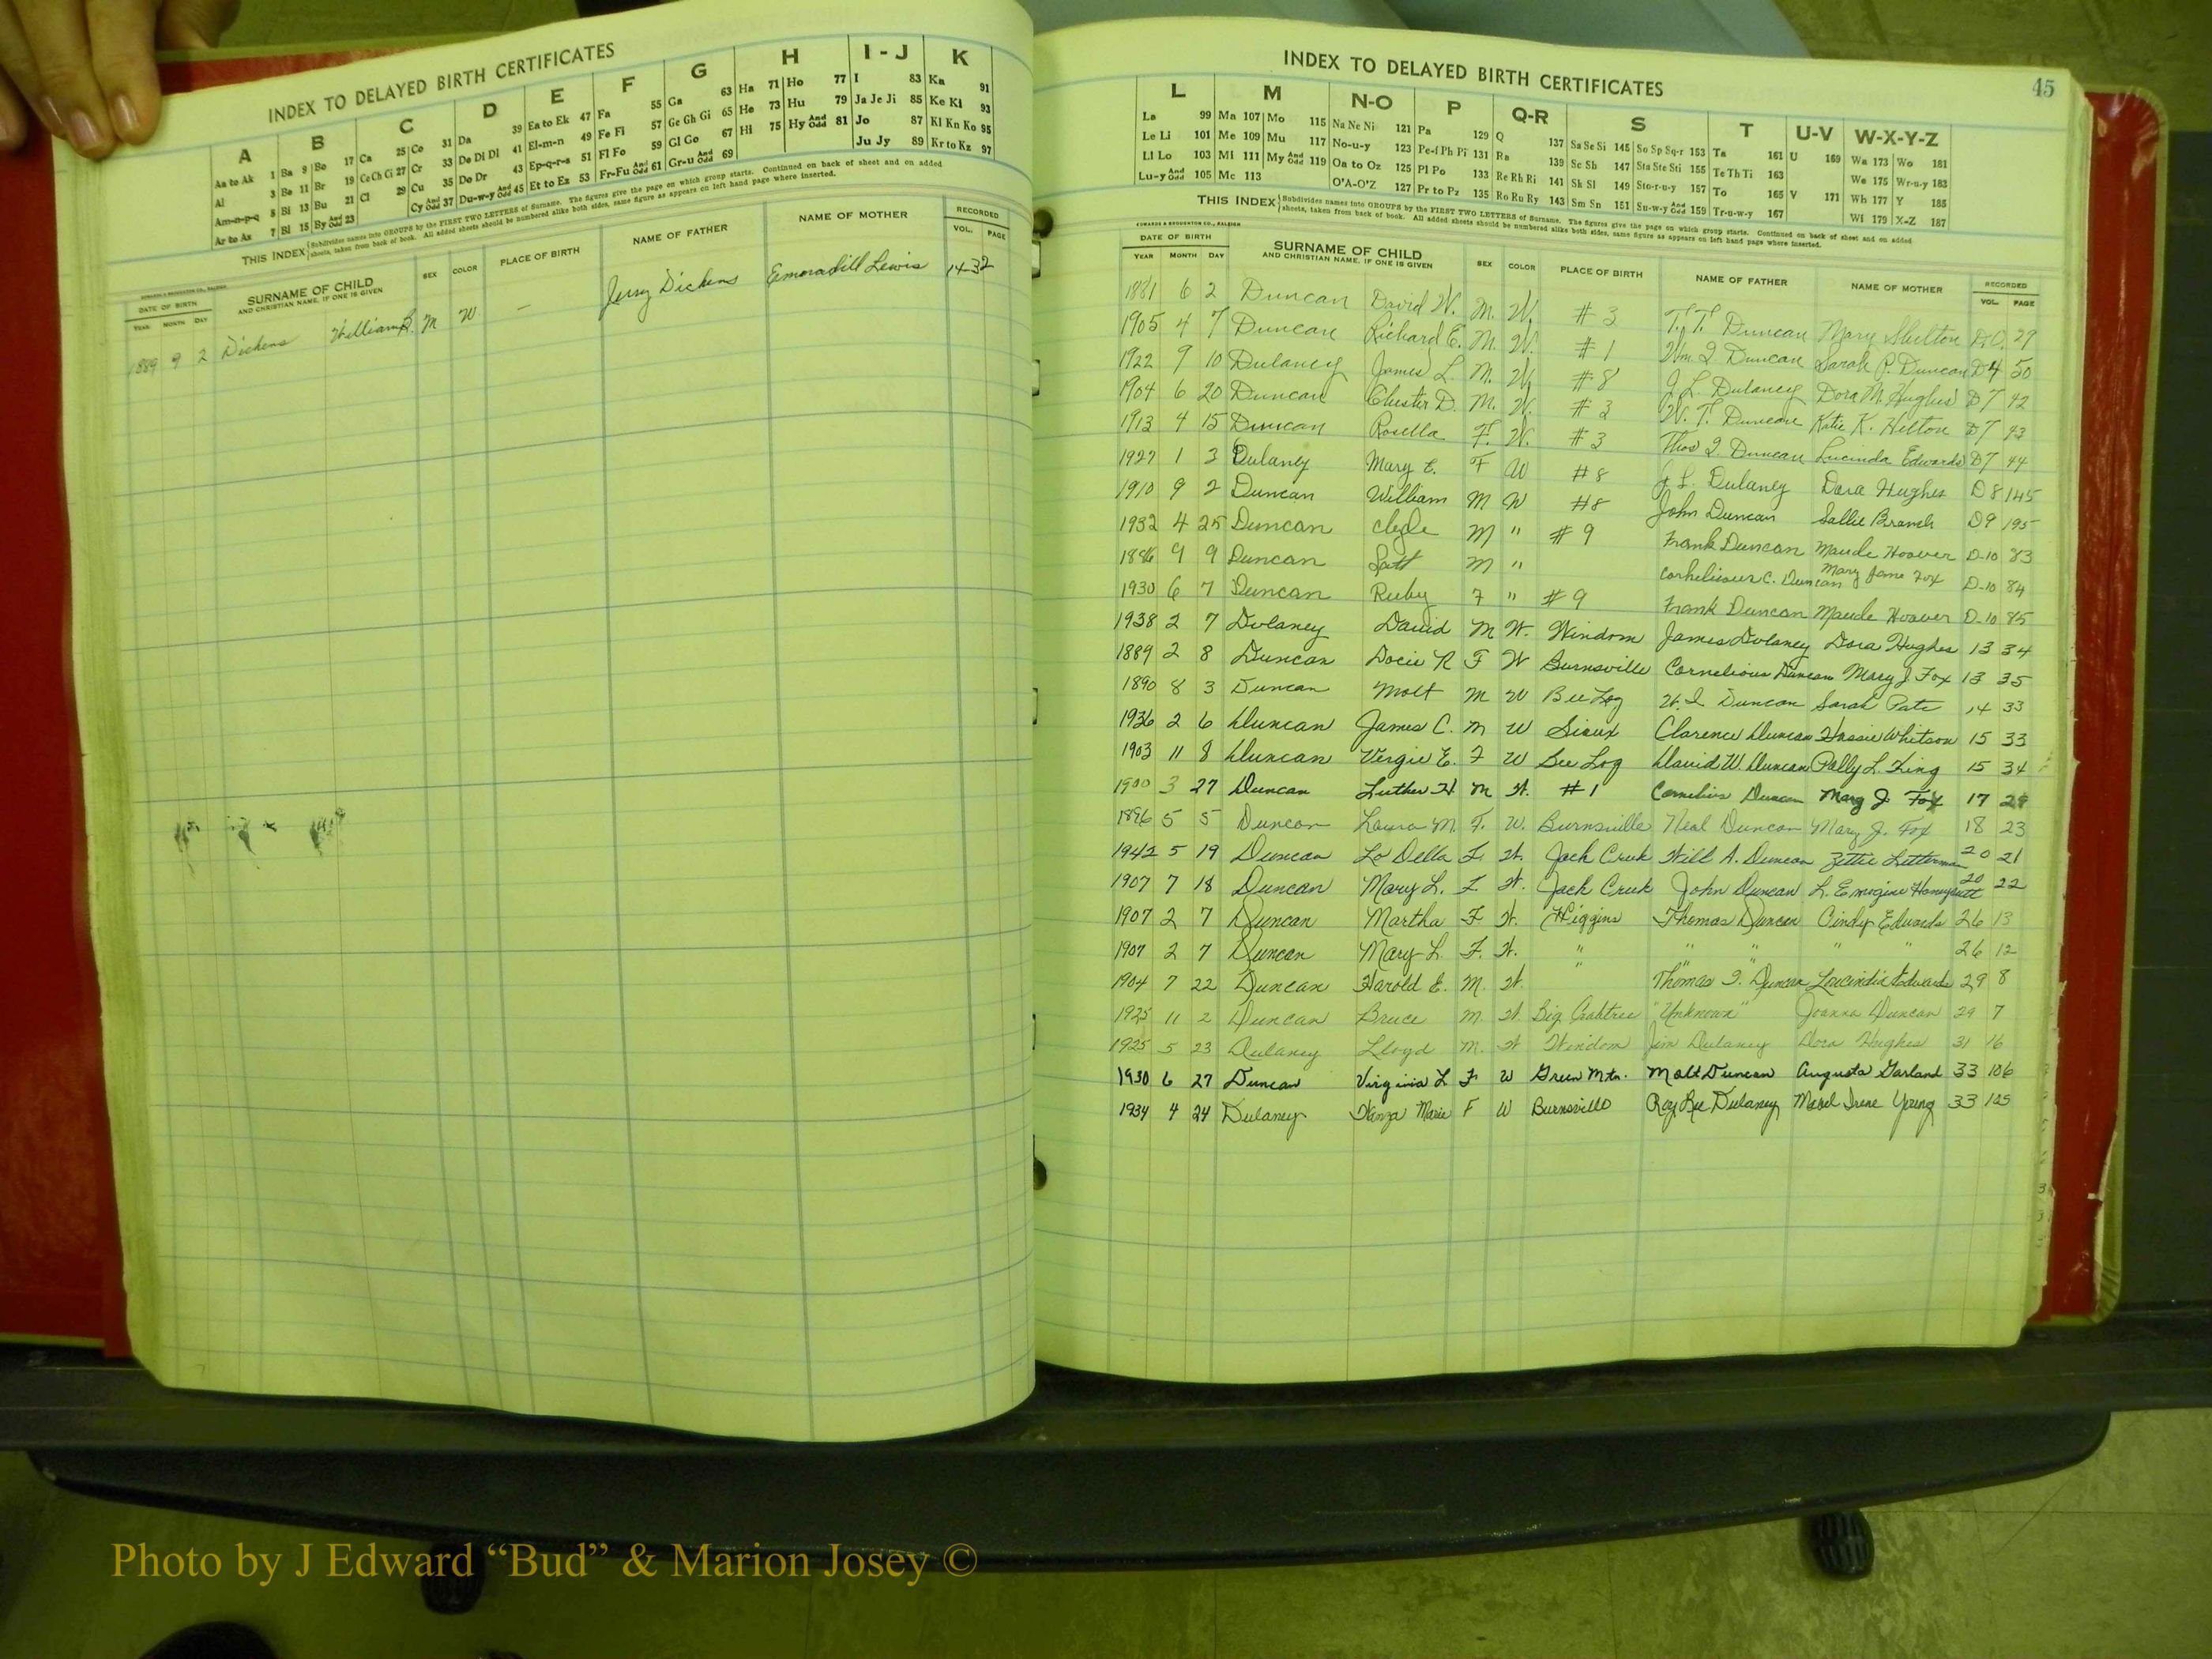 INDEX TO DELAYED BIRTH CERTIFICATES
A B C D E F G H I - J K
Aa to Ak 1 Ba 9 Bo 17 Ca 25 Co 31 Da 39 Ea to Ek 47 Fa 55 Ga 63 Ha 71 Ho 77 I 83 Ka 91
Al 3 Be 11 Br 19 Ce Ch Ci 27 Cr 33 De Di Dl 41 El-m-n 49 Fe Fi 57 Ge Gh Gi 65 He 73 Hu 79 Ja Je Ji 85 Ke Ki 93
Am-n-p-q 5 Bi 13 Bu 21 Cl 29 Cu 35 Do Dr 43 Ep-q-r-s 51 Fl Fo 59 Gl Go 67 Hi 75 Hy And Odd 81 Jo 87 Kl Kn Ko 95
Ar to Az 7 Bl 15 By And Odd 23 Cy And Odd 37 Du-w-y And Odd 45 Et to Ez 53 Fr-Fu And Odd 61 Gr-u And Odd 69 Ju Jy 89 Kr to Kz 97
THIS INDEX Subdivides names into GROUPS by the FIRST TWO LETTERS of Surname. The figures give the page on which group starts. Continued on back of sheet and on added
sheets, taken from back of book. All added sheets should be numbered alike both sides, same figure as appears on left hand page where inserted.
DATE OF BIRTH SURNAME OF CHILD SEX COLOR PLACE OF BIRTH NAME OF FATHER NAME OF MOTHER RECORDED
YEAR MONTH DAY AND CHRISTIAN NAME, IF ONE IS GIVEN VOL. PAGE
1889 9 2 Dickens William B. M W. — Jerry Dickens Lewis 14-32
INDEX TO DELAYED BIRTH CERTIFICATES
45
L M N-O P Q-R S T U-V W-X-Y-Z
La 99 Ma 107 Mo 115 Na Ne Ni 121 Pa 129 Q 137 Sa Se Si 145 So Sp Sq-r 153 Ta 161 U 169 Wa 173 Wo 181
Le Li 101 Me 109 Mu 117 No-u-y 123 Pe-f Ph Pi 131 Ra 139 Sc Sh 147 Sta Ste Sti 155 Te Th Ti 163 We 175 Wr-u-y 183
Ll Lo 103 Mi 111 My And Odd 119 Oa to Oz 125 Pl Po 133 Re Rh Ri 141 Sk Sl 149 Sto-r-u-y 157 To 165 V 171 Wh 177 Y 185
Lu-y And Odd 105 Mc 113 O'A-O'Z 127 Pr to Pz 135 Ro Ru Ry 143 Sm Sn 151 Su-w-y And Odd 159 Tr-u-w-y 167 Wi 179 X-Z 187
THIS INDEX Subdivides names into GROUPS by the FIRST TWO LETTERS of Surname. The figures give the page on which group starts. Continued on back of sheet and on added
sheets, taken from back of book. All added sheets should be numbered alike both sides, same figure as appears on left hand page where inserted.
EDWARDS & BROUGHTON CO., RALEIGH
DATE OF BIRTH SURNAME OF CHILD SEX COLOR PLACE OF BIRTH NAME OF FATHER NAME OF MOTHER RECORDED
YEAR MONTH DAY AND CHRISTIAN NAME, IF ONE IS GIVEN VOL. PAGE
1881 6 2 Duncan David W. M. W. #3 T. T. Duncan Mary Shelton 29
1905 4 7 Duncan Richard E. M. W. #1 Wm. I. Duncan Sarah P. Duncan D4 50
1922 9 10 Dulaney James L. M. W. #8 J L. Dulaney Dora M. Hughes D7 42
1904 6 20 Duncan Chester D. M. W. #3 W. T. Duncan Katie K. Hilton D7 43
1913 4 15 Duncan Rosella F. W. #3 Thos I. Duncan Lucinda Edwards D7 44
1927 1 3 Dulaney Mary E. F W #8 J L. Dulaney Dora Hughes D8 145
1910 9 2 Duncan William M W #8 John Duncan Sallie Branch D9 195
1932 4 25 Duncan Clyde M " #9 Frank Duncan Maude Hoover D-10 83
9 9 Duncan M " C. Duncan Mary Jane Fox D-10 84
1930 6 7 Duncan Ruby F " #9 Frank Duncan Maude Hoover D-10 85
1938 2 7 Dulaney David M W. Windom James Dulaney Dora Hughes 13 34
1889 2 8 Duncan Docie R F W Burnsville Cornelious Duncan Mary J Fox 13 35
1890 8 3 Duncan Molt M W Bee Log W. I Duncan Sarah Pate 14 33
1936 2 6 Duncan James C. M W Sioux Clarence Duncan Hassie Whitson 15 33
1903 11 8 Duncan Vergie E. F W Bee Log David W. Duncan Polly L. King 15 34
1900 3 27 Duncan Luther H M W. #1 Cornelius Duncan Mary J. Fox 17 29
1896 5 5 Duncan Laura M. F. W. Burnsville Neal Duncan Mary J. Fox 18 23
1942 5 19 Duncan Lo Della F. W. Jack Creek Will A. Duncan Zettie Letterman 20 21
1907 7 18 Duncan Mary L. F. W. Jack Creek John Duncan L. Emogine Honeycutt 20 22
1907 2 7 Duncan Martha F W. Higgins Thomas Duncan Cindy Edwards 26 13
1907 2 7 Duncan Mary L. F. W. " " " " " 26 12
1904 7 22 Duncan Harold E. M. W. " Thomas I. Duncan Lucindia Edwards 29 8
1925 11 2 Duncan Bruce M. W. Big Crabtree "Unknown" Joanna Duncan 29 7
1925 5 23 Dulaney Lloyd M. W Windom Jim Dulaney Dora Hughes 31 16
1930 6 27 Duncan Virginia L F W Green Mtn. Molt Duncan Augusta Garland 33 106
1934 4 24 Dulaney Wanza Marie F W Burnsville Roy Lee Dulaney Mabel Irene Young 33 125
Photo by J Edward “Bud” & Marion Josey ©